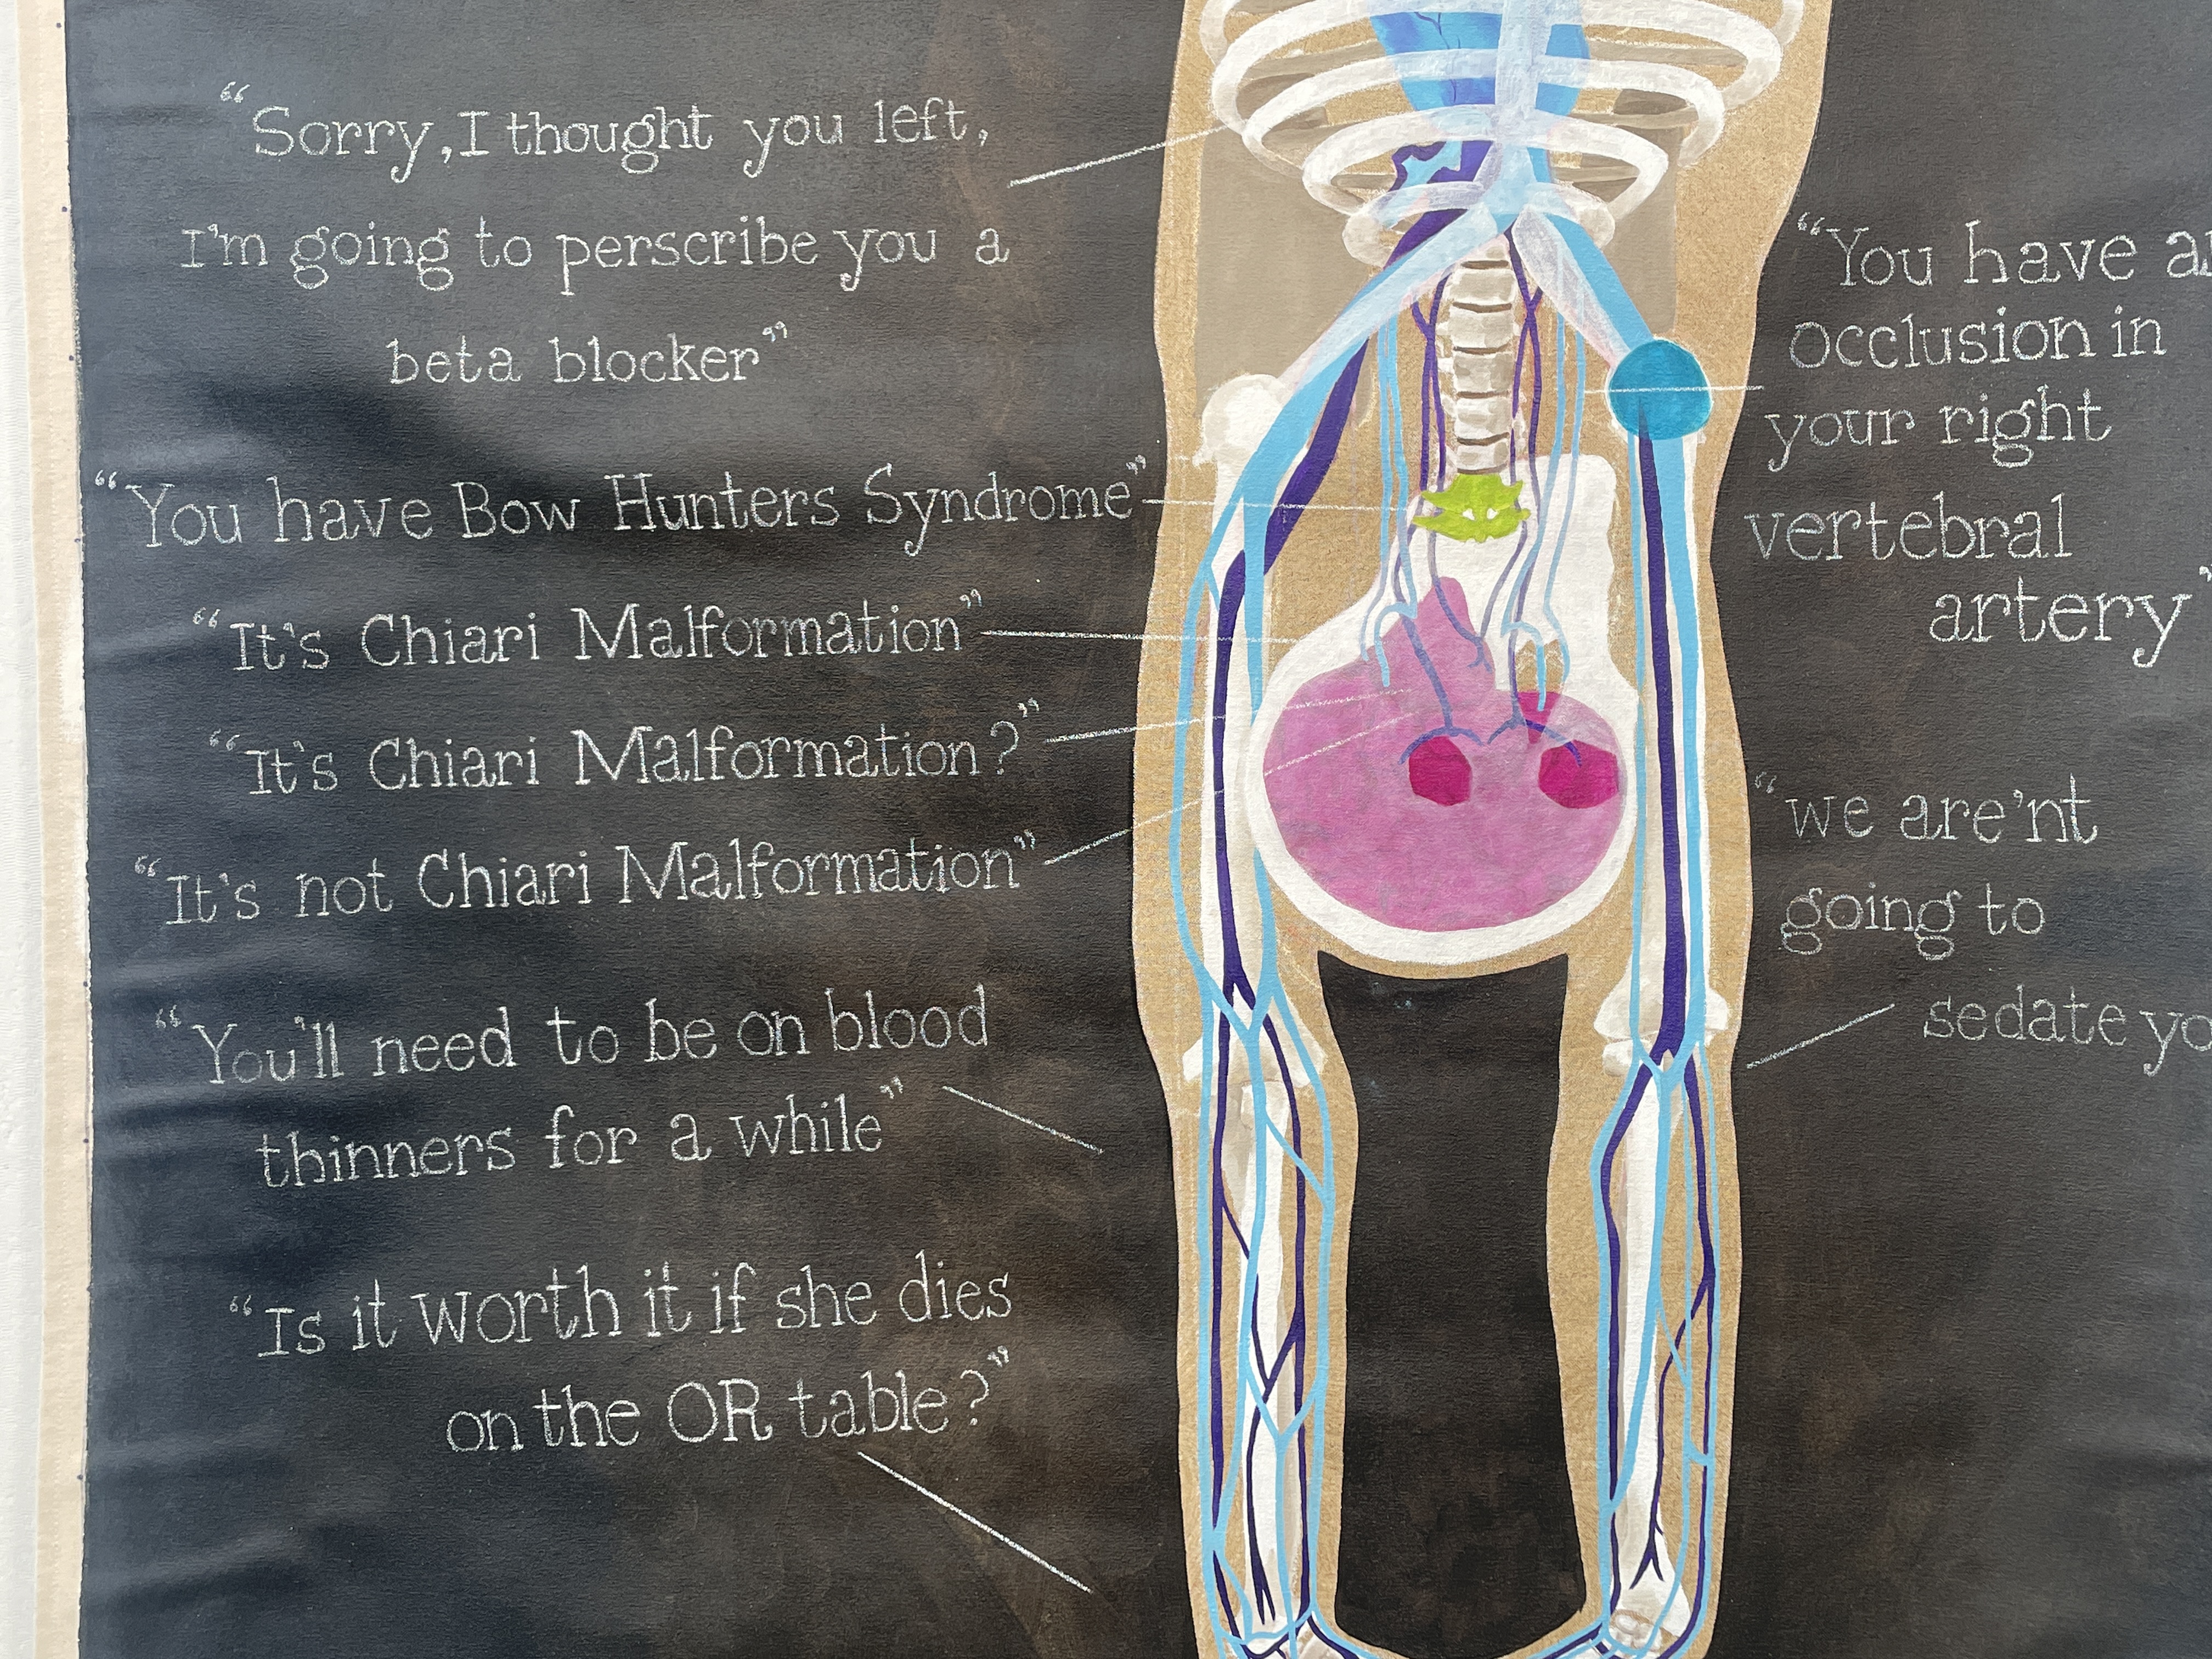 “Sorry, I thought you left,
I'm going to perscribe you a
beta blocker”
“You have Bow Hunters Syndrome”
“It's Chiari Malformation”
“It's Chiari Malformation?”
“It's not Chiari Malformation”
“You'll need to be on blood
thinners for a while”
“Is it worth it if she dies
on the OR table?”
“You have
occlusion in
your right
vertebral
artery”
“we are'nt
going to
sedate